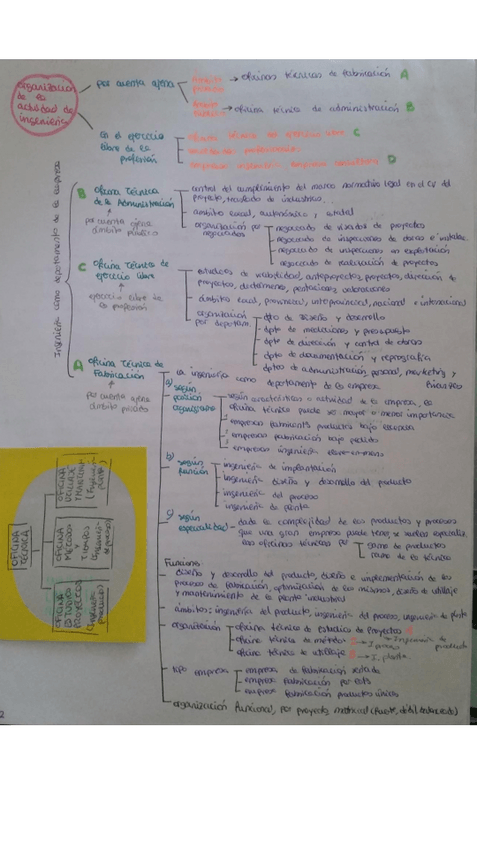 organización de la actividad de ingeniería
por cuenta ajena
ámbito privado → oficinas técnicas de fabricación A
ámbito público → oficina técnica de administración B
En el ejercicio libre de la profesión
oficina técnica del ejercicio libre C
D
Ingeniería como departamento de la empresa
B oficina Técnica de la Administración
por cuenta ajena ámbito público
control del cumplimiento del marco normativo legal en el
proyecto, traslado de industrias
ámbito local, autonómico y estatal
organización por negociados
negociado de visados de proyectos
negociado de inspecciones de obras e instalac
negociado de inspecciones en explotación
negociado de realización de proyectos
C oficina Técnica de ejercicio libre
ejercicio libre de la profesión
estudios de viabilidad, anteproyectos, proyectos, dirección de
proyectos, dictámenes, peritaciones, valoraciones
ámbitos local, provincial, interprovincial, nacional e internacional
organización por departam.
dpto de diseño y desarrollo
dpto de mediciones y presupuesto
dpto de dirección y control de obras
dpto de documentación y reprografía
dptos de administración, personal, marketing y finanzas
A oficina Técnica de Fabricación
por cuenta ajena ámbito privado
La ingeniería como departamento de la empresa
a) según posición organigrama
según características o actividad de la empresa, la
oficina técnica puede ser mayor o menor importancia
empresa fabricante productos bajo
empresas fabricación bajo pedido
empresas ingeniería
b) según función
ingeniería de implantación
ingeniería diseño y desarrollo del producto
ingeniería del proceso
ingeniería de planta
c) según especialidad
dada la complejidad de los productos y procesos
que una gran empresa puede tener, se suelen especializ
las oficinas técnicas por
gama de productos
ramas de la técnica
Funciones:
diseño y desarrollo del producto, diseño e implementación de los
procesos de fabricación, optimización de los mismos, diseño de utillaje
y mantenimiento de la planta industrial
ámbitos: ingeniería del producto, ingeniería del proceso, ingeniería de planta
organización
oficina técnica de Estudios de Proyectos → Ingeniería de producto
oficina técnica de métodos → I. proceso
oficina técnica de utillaje → I. planta
tipo empresa
empresa de fabricación seriada
empresa fabricación por lots
empresa fabricación productos únicos
organización funcional, por proyecto, matricial (fuerte, débil, balanceado)
OFICINA TÉCNICA
OFICINA UTILLAJE Y MANTENIM.
(Ingeniería planta)
OFICINA MÉTODOS Y TIEMPOS
(Ingeniería proceso)
OFICINA ESTUDIOS PROYECTOS
(Ingeniería producto)
2